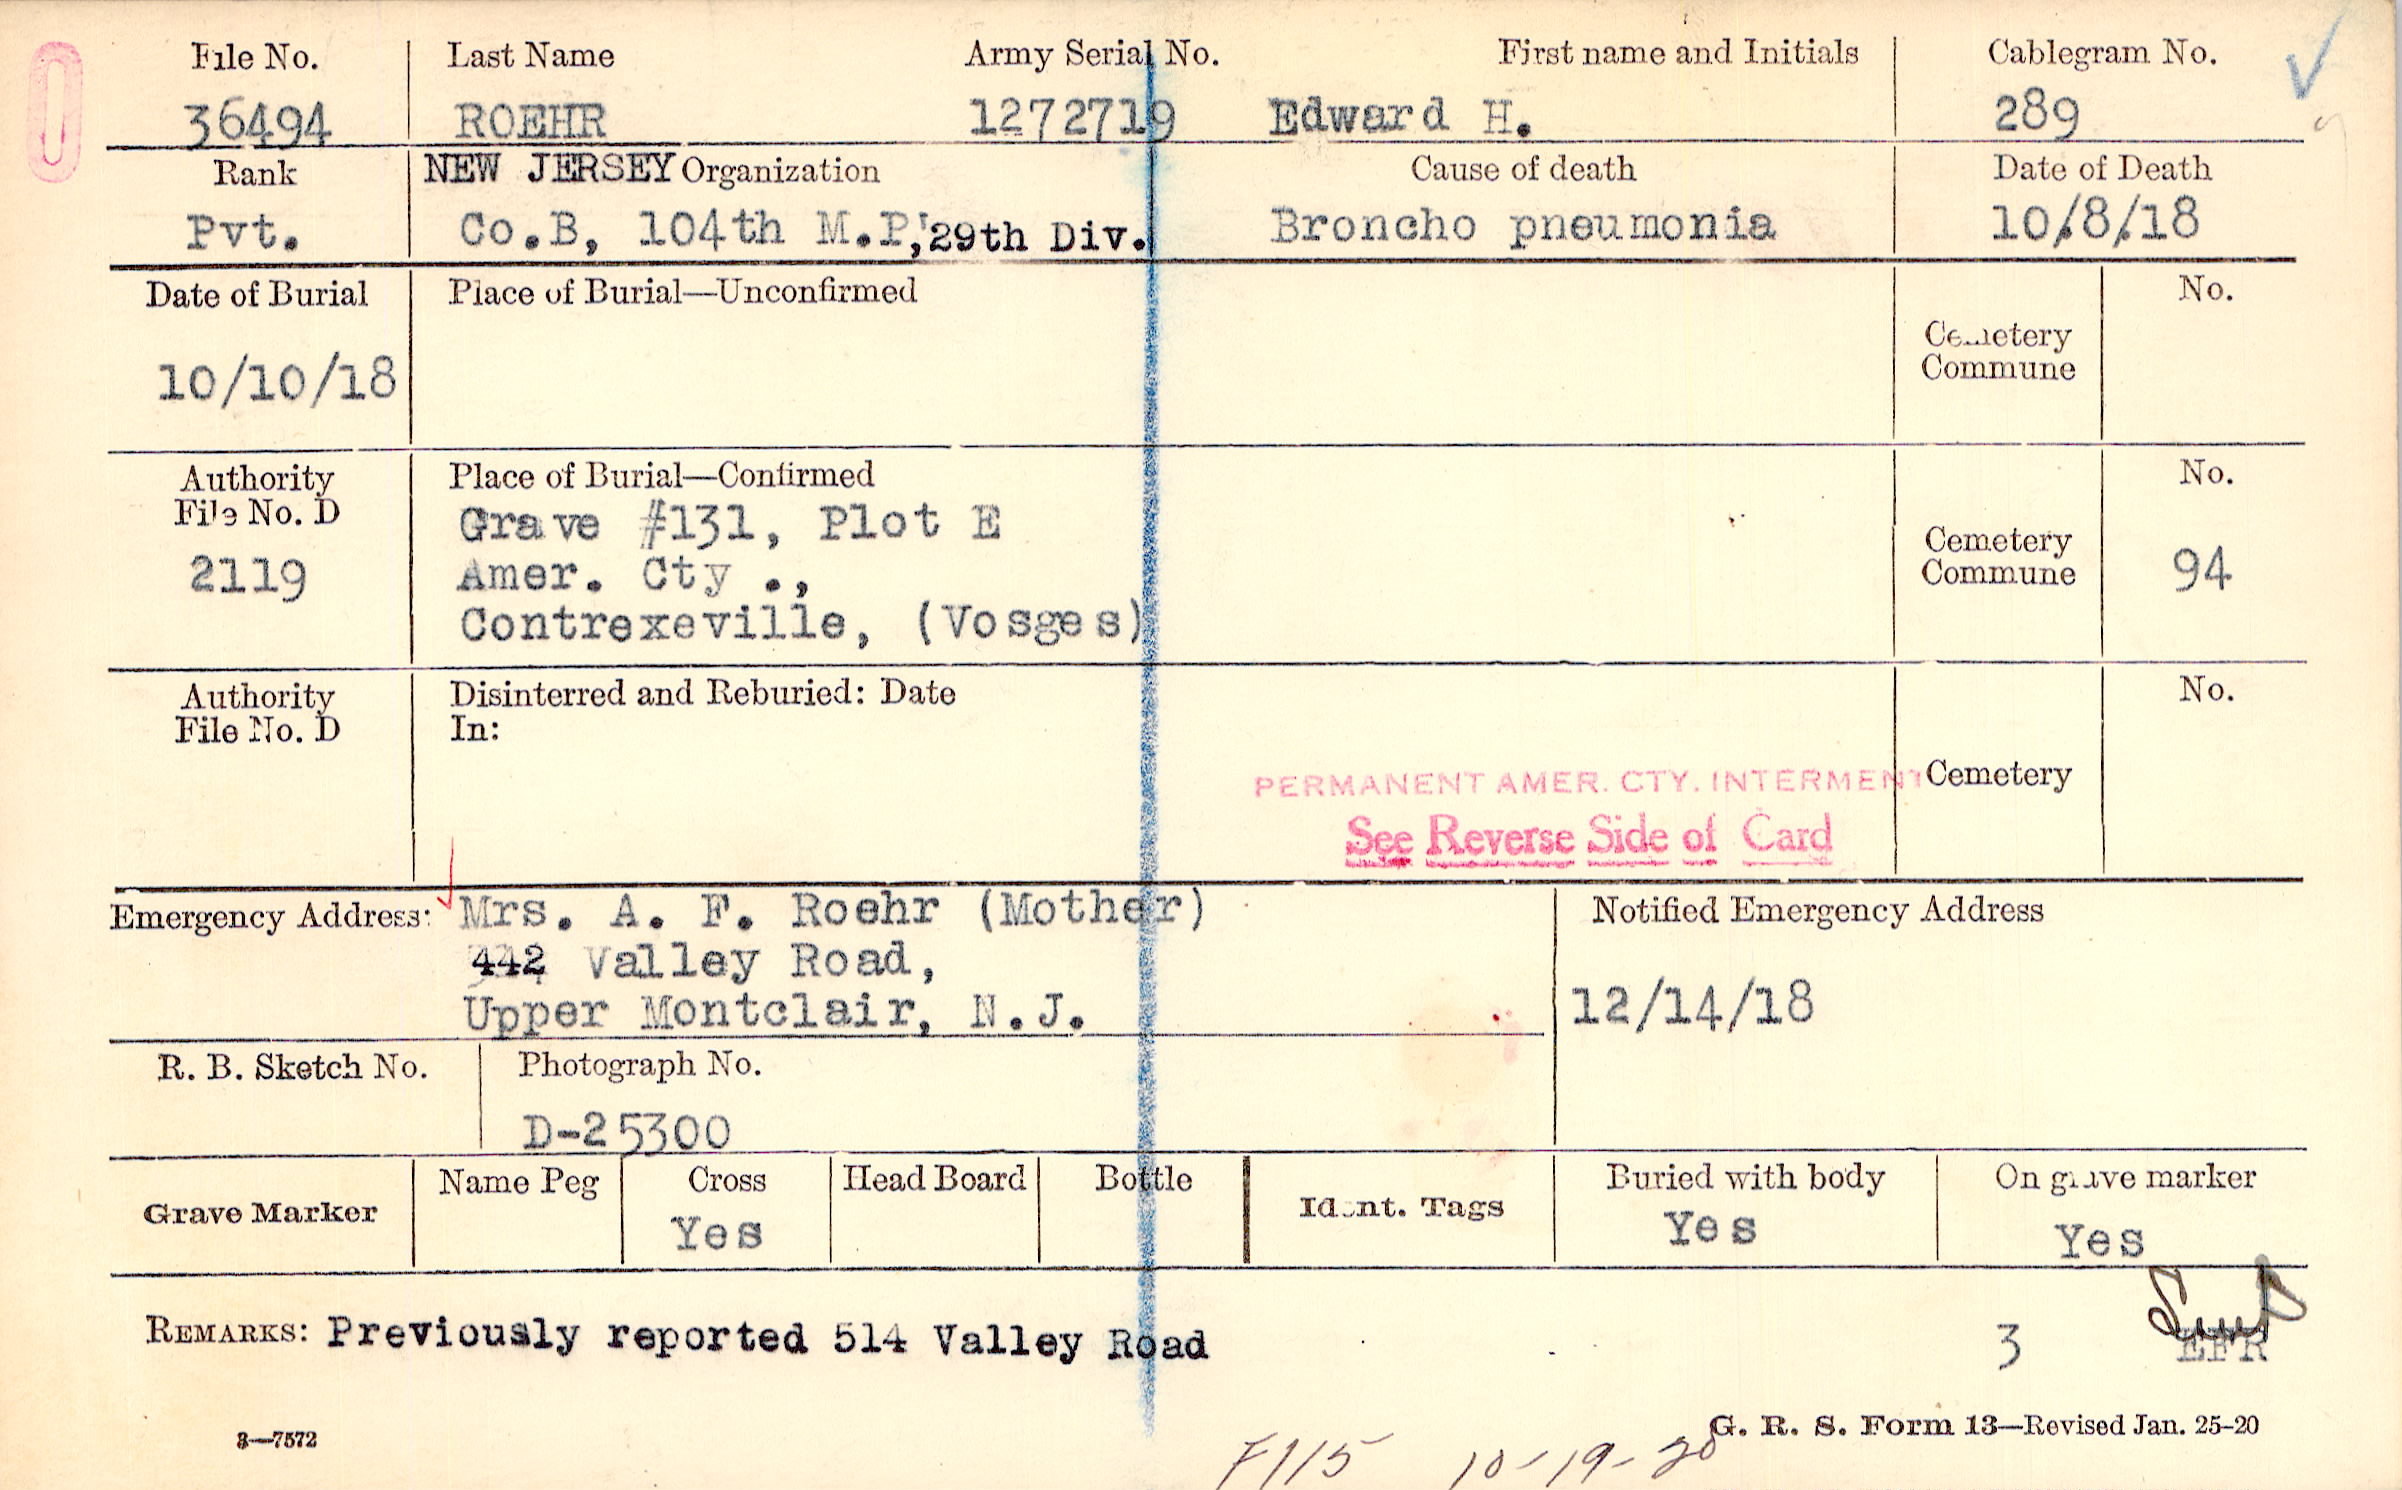 File No. Last Name Army Serial No. First name and Initials Cablegram No.
36494 ROEHR 1272719 Edward H. 289
Rank NEW JERSEY Organization Cause of death Date of Death
Pvt. Co.B, 104th M.P, 29th Div. Broncho pneumonia 10/8/18
Date of Burial Place of Burial—Unconfirmed No.
Cemetery
Commune
10/10/18
Authority Place of Burial—Confirmed No.
File No. D
Grave #131, Plot E
Cemetery
2119 Amer. Cty ., Commune 94
Contrexeville, (Vosges)
Authority Disinterred and Reburied: Date No.
File No. D In:
PERMANENT AMER. CTY. INTERMENT Cemetery
See Reverse Side of Card
Emergency Address: Mrs. A. F. Roehr (Mother) Notified Emergency Address
442 Valley Road,
Upper Montclair, N.J. 12/14/18
R. B. Sketch No. Photograph No.
D-25300
Grave Marker Name Peg Cross Head Board Bottle Ident. Tags Buried with body On grave marker
Yes Yes Yes
REMARKS: Previously reported 514 Valley Road 3 EFR
3—7572 G. R. S. Form 13—Revised Jan. 25-20
F115 10-19-20